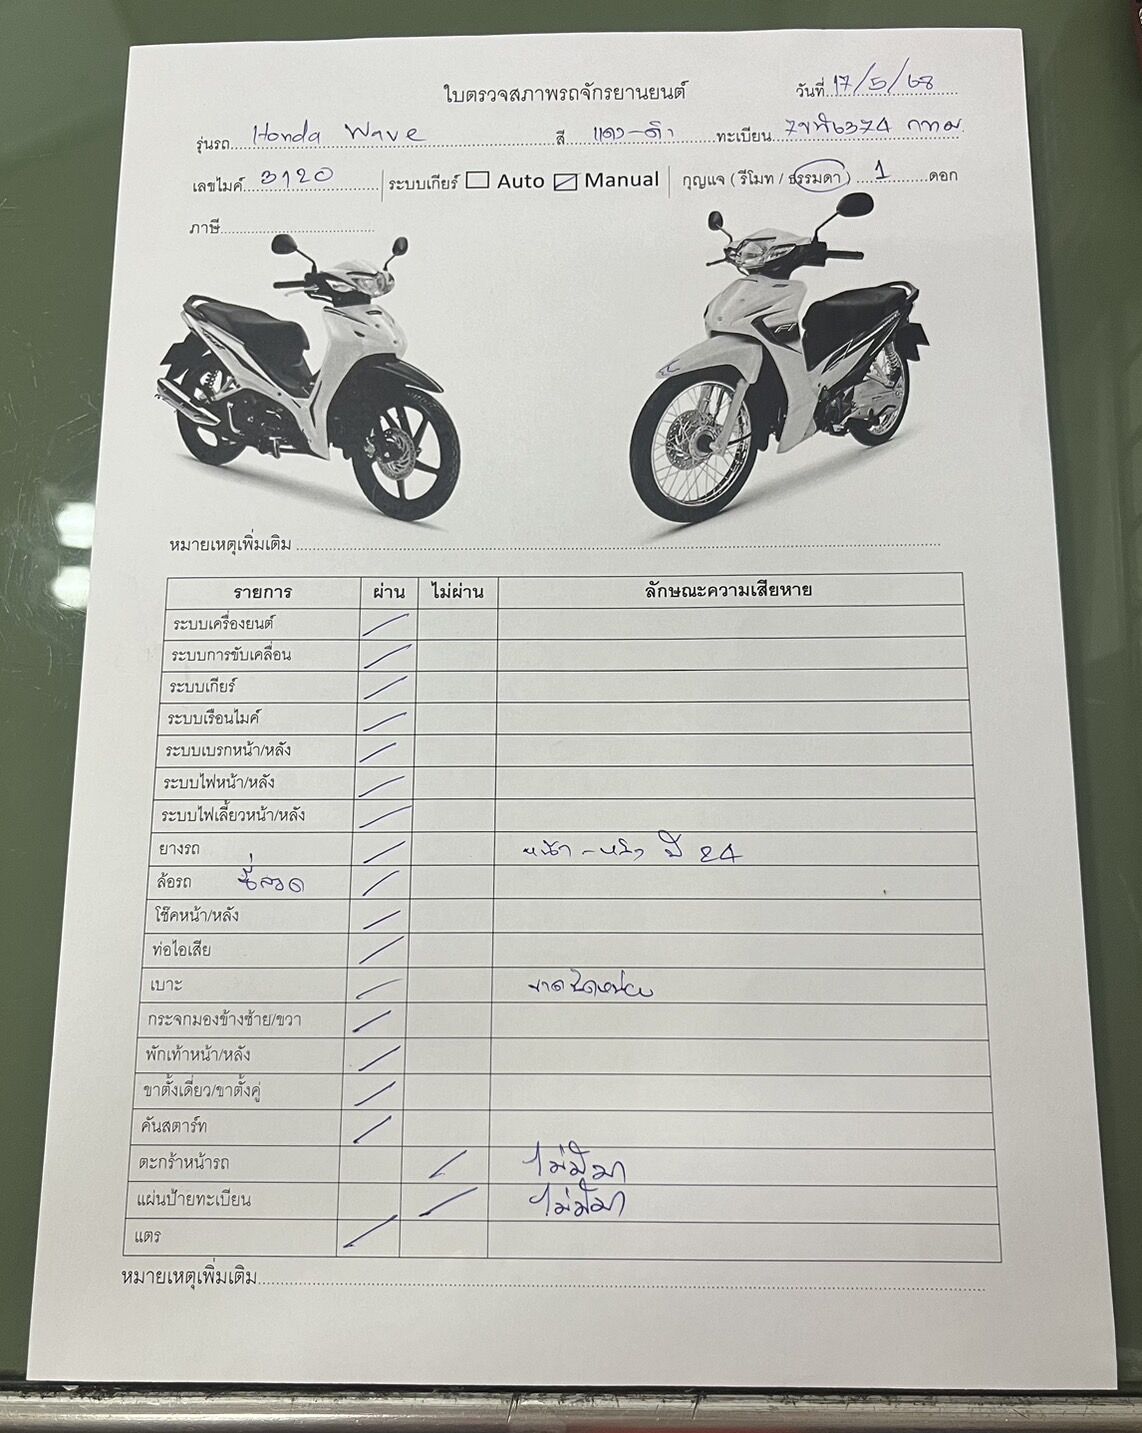 ใบตรวจสภาพรถจักรยานยนต์
วันที่ 17/5/68
รุ่นรถ Honda Wave สี แดง-ดำ ทะเบียน 6374 กทม.
เลขไมค์ 3120 ระบบเกียร์ Auto Manual กุญแจ ( รีโมท / ธรรมดา ) 1 ดอก
ภาษี
FI
หมายเหตุเพิ่มเติม
รายการ ผ่าน ไม่ผ่าน ลักษณะความเสียหาย
ระบบเครื่องยนต์
ระบบการขับเคลื่อน
ระบบเกียร์
ระบบเรือนไมค์
ระบบเบรกหน้า/หลัง
ระบบไฟหน้า/หลัง
ระบบไฟเลี้ยวหน้า/หลัง
ยางรถ หน้า-หลัง ปี 24
ล้อรถ ซี่ลวด
โช๊คหน้า/หลัง
ท่อไอเสีย
เบาะ ขาดนิดหน่อย
กระจกมองข้างซ้าย/ขวา
พักเท้าหน้า/หลัง
ขาตั้งเดี่ยว/ขาตั้งคู่
คันสตาร์ท
ตะกร้าหน้ารถ ไม่มีมา
แผ่นป้ายทะเบียน ไม่มีมา
แตร
หมายเหตุเพิ่มเติม